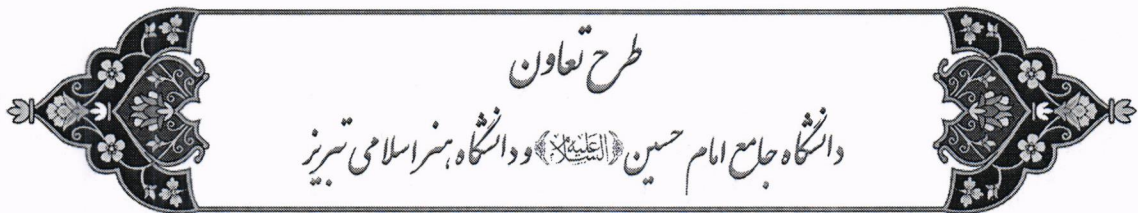 طرح تعاون
دانشگاه جامع امام حسین (علیه السلام) و دانشگاه هنر اسلامی تبریز